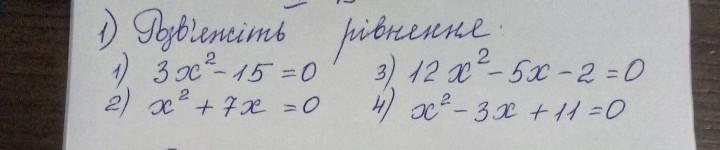 1) Розв'яжіть рівнення.
1) 3x² - 15 = 0 3) 12x² - 5x - 2 = 0
2) x² + 7x = 0 4) x² - 3x + 11 = 0